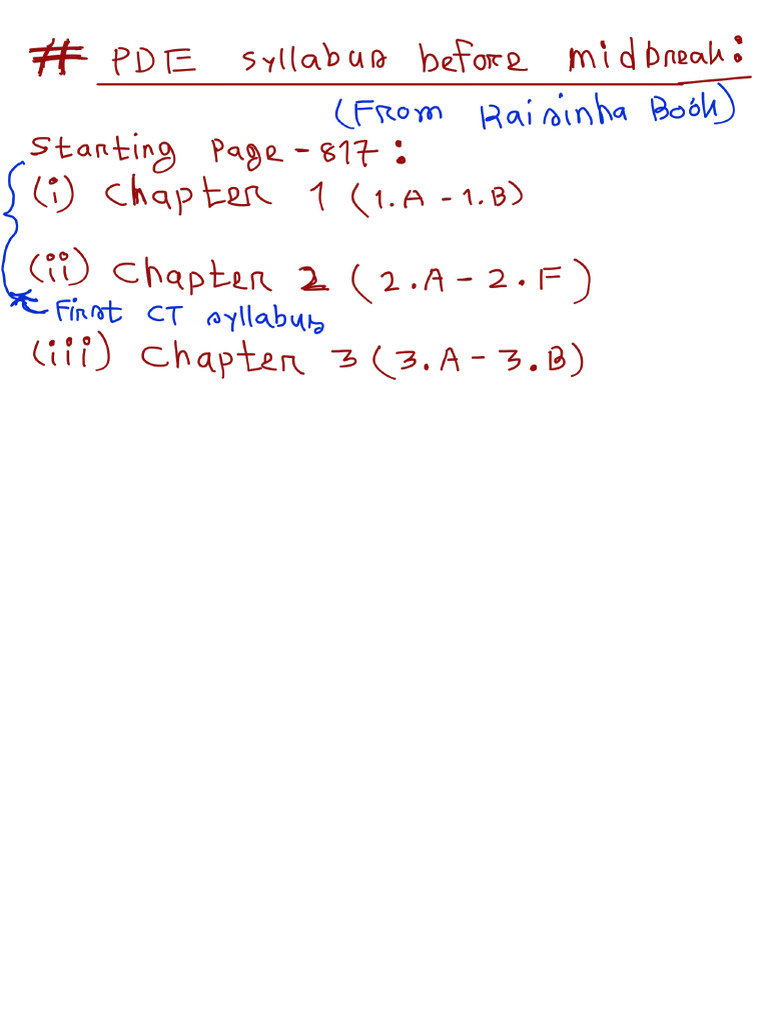 # PDE syllabus before midbreak:
(From Raisinha Book)
Starting Page - 817:
(i) Chapter 1 (1.A - 1.B)
(ii) Chapter 2 (2.A - 2.F)
First CT syllabus
(iii) Chapter 3 (3.A - 3.B)